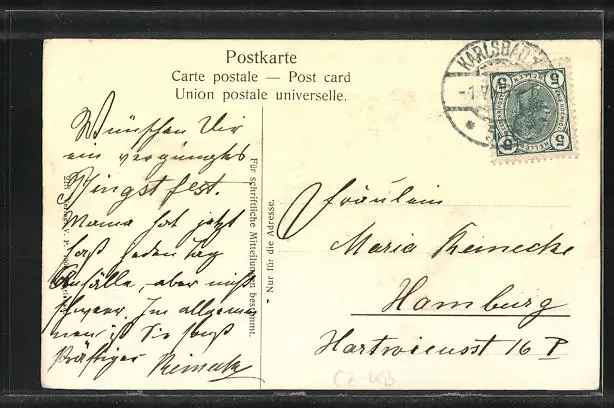 Postkarte
Carte postale — Post card
Union postale universelle.
KARLSBAD
5 5
5 5
Wünschen Dir
ein vergnügtes
Pfingstfest.
Mama hat jetzt
fast jeden Tag
Anfälle, aber nicht
. Im allgemei-
nen ist Sie
kräftiger Reinecke
Für schriftliche Mitteilungen bestimmt.
Nur für die Adresse.
Fräulein
Maria Reinecke
Hamburg
Hartwicusst 16 I
CZ-KB